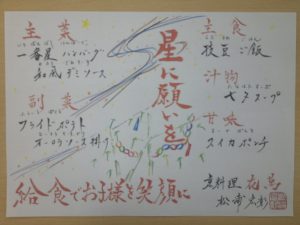 星に願いを
主食
枝豆ご飯
汁物
七夕スープ
甘味
スイカポンチ
主菜
一番星ハンバーグ
和風デミソース
副菜
フライドポテト
オーロラソース掛け
給食でお子様を笑顔に
京料理 花萬